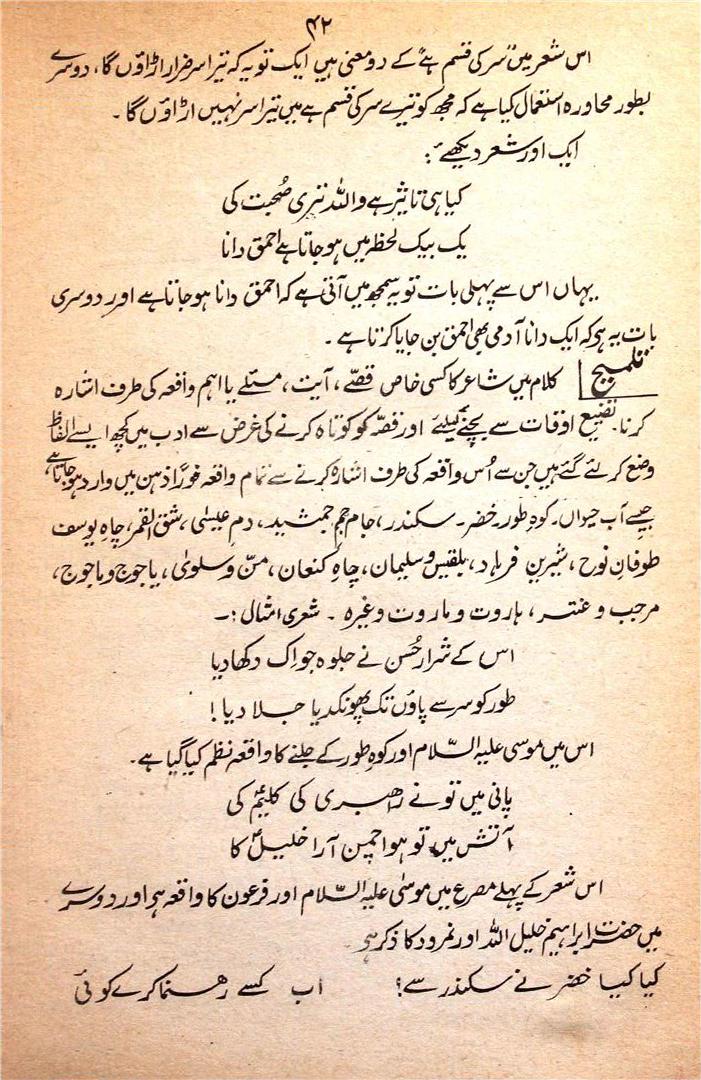 ۴۲
اس شعر میں "سر کی قسم ہے" کے دو معنی ہیں ایک تو یہ کہ تیرا سر ضرور اڑاؤں گا، دوسرے
بطور محاورہ استعمال کیا ہے کہ مجھ کو تیرے سر کی قسم ہے میں تیرا سر نہیں اڑاؤں گا۔
ایک اور شعر دیکھئے:
کیا ہی تاثیر ہے واللہ تیری صُحبت کی
یک بیک لحظہ میں ہو جاتا ہے احمق دانا
یہاں اس سے پہلی بات تو یہ سمجھ میں آتی ہے کہ احمق دانا ہو جاتا ہے اور دوسری
بات یہ ہی کہ ایک دانا آدمی بھی احمق بن جایا کرتا ہے۔
تلمیح کلام میں شاعر کا کسی خاص قصّے، آیت، مسئلے یا اہم واقعہ کی طرف اشارہ
کرنا۔ تضیع اوقات سے بچنے کیلئے اور قصّہ کو کوتاہ کرنے کی غرض سے ادب میں کچھ ایسے الفاظ
وضع کر لئے گئے ہیں جن سے اُس واقعہ کی طرف اشارہ کرنے سے تمام واقعہ فوراً ذہن میں وارد ہو جاتا ہے،
جیسے آب حیواں۔ کوہِ طور۔ خضر۔ سکندر، جامِ جم جمشید، دمِ عیسٰی، شق القمر، چاہِ یوسف
طوفانِ نوح، شیرین فرہاد، بلقیس و سلیمان، چاہِ کنعان، منّ و سلویٰ، یاجوج و ماجوج،
مرجب و عنتر، ہاروت و ماروت وغیرہ ۔ شعری امثال :۔
اس کے شرارِ حُسن نے جلوہ جو اک دکھا دیا
طور کو سر سے پاؤں تک پھونکدیا جلا دیا!
اس میں موسیٰ علیہ السّلام اور کوہِ طور کے جلنے کا واقعہ نظم کیا گیا ہے۔
پانی میں تو نے راھبری کی کلیمؑ کی
آتش میں تو ہوا چمن آرا خلیلؑ کا
اس شعر کے پہلے مصرع میں موسٰی علیہ السّلام اور فرعون کا واقعہ ہی اور دوسرے
میں حضرت ابراہیم خلیل اللہ اور نمرود کا ذکر ہی۔
کیا کیا خضر نے سکندر سے؟ اب کسے رھنما کرے کوئی